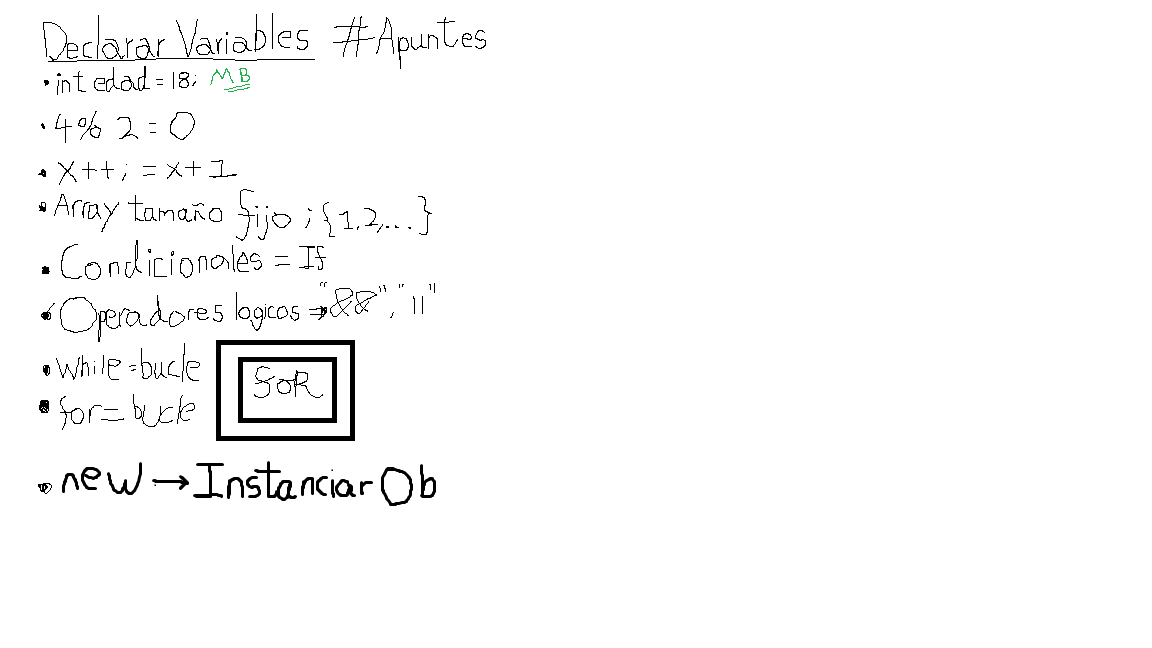 Declarar Variables #Apuntes
• int edad = 18; MB
• 4% 2 = 0
• x++; = x+1
• Array tamaño fijo ; {1,2,...}
• Condicionales = If
• Operadores logicos => "&&", "||"
• while = bucle
foR
• for = bucle
• new → Instanciar Ob